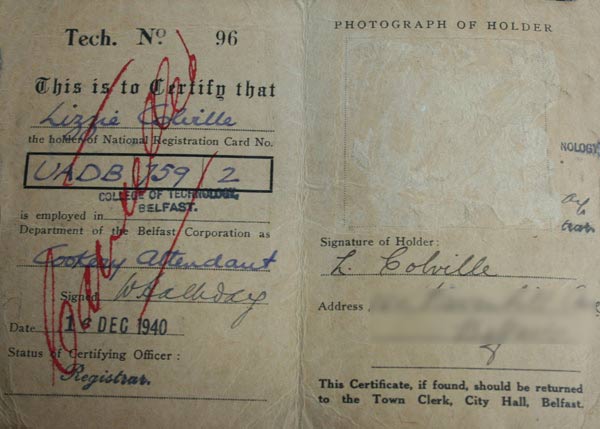 Tech. No. 96
This is to Certify that
Lizzie Colville
the holder of National Registration Card No.
UADB 359 2
COLLEGE OF TECHNOLOGY,
BELFAST.
is employed in
Department of the Belfast Corporation as
Cookery Attendant
Signed
Date 16 DEC 1940
Status of Certifying Officer :
Registrar.
Cancelled
PHOTOGRAPH OF HOLDER
NOLOGY
Signature of Holder :
L. Colville
Address
This Certificate, if found, should be returned
to the Town Clerk, City Hall, Belfast.